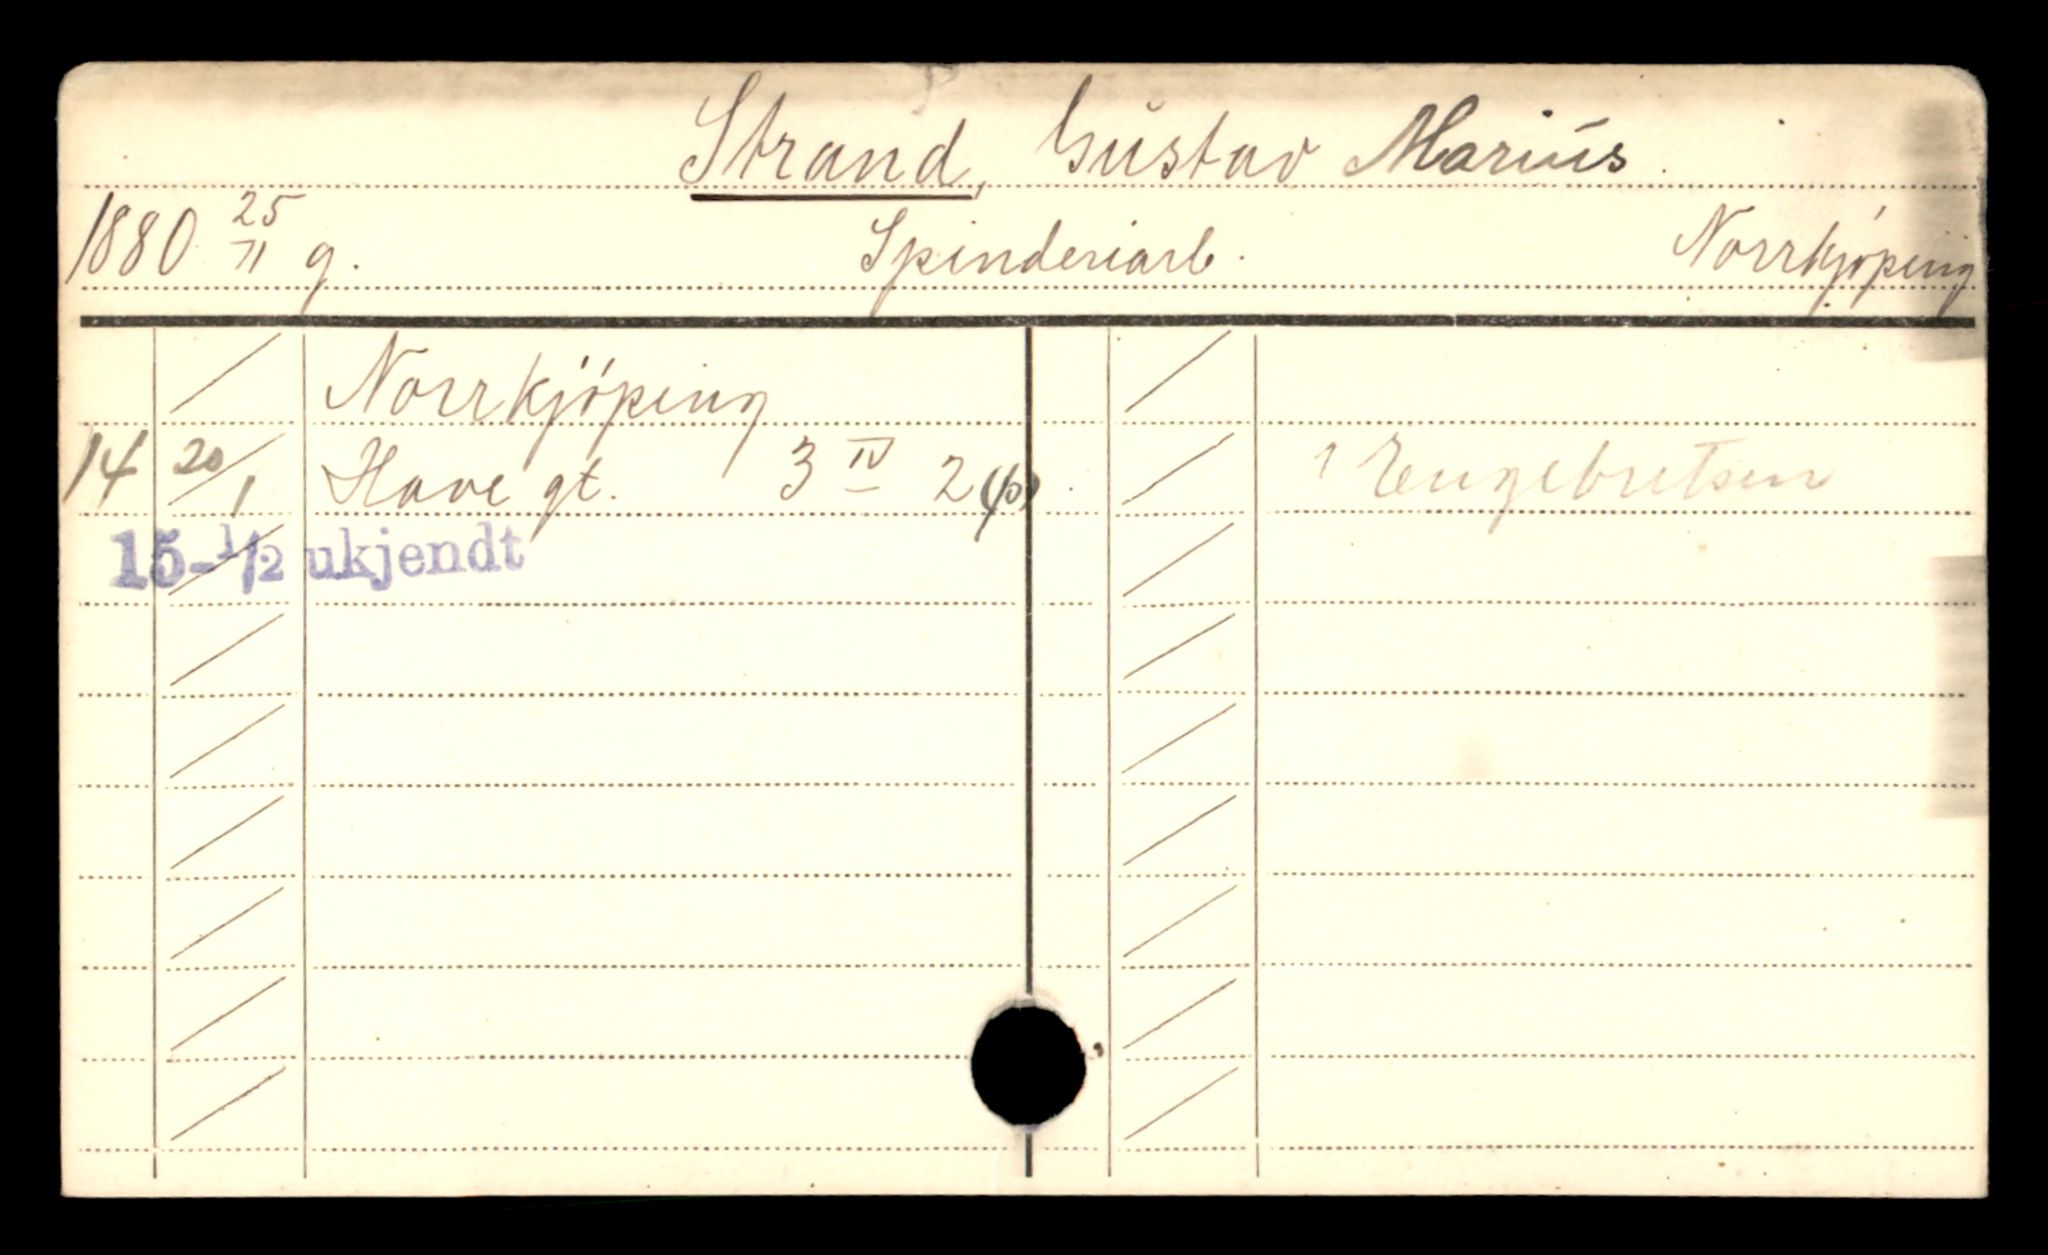 Strand, Gustav Marius.
1880 25/11 g. Spinderiarb. Norrkjöping
Norrkjöping
14 20/1 Have gt. 3 IV 2
Engebretsen
15-1/2 ukjendt